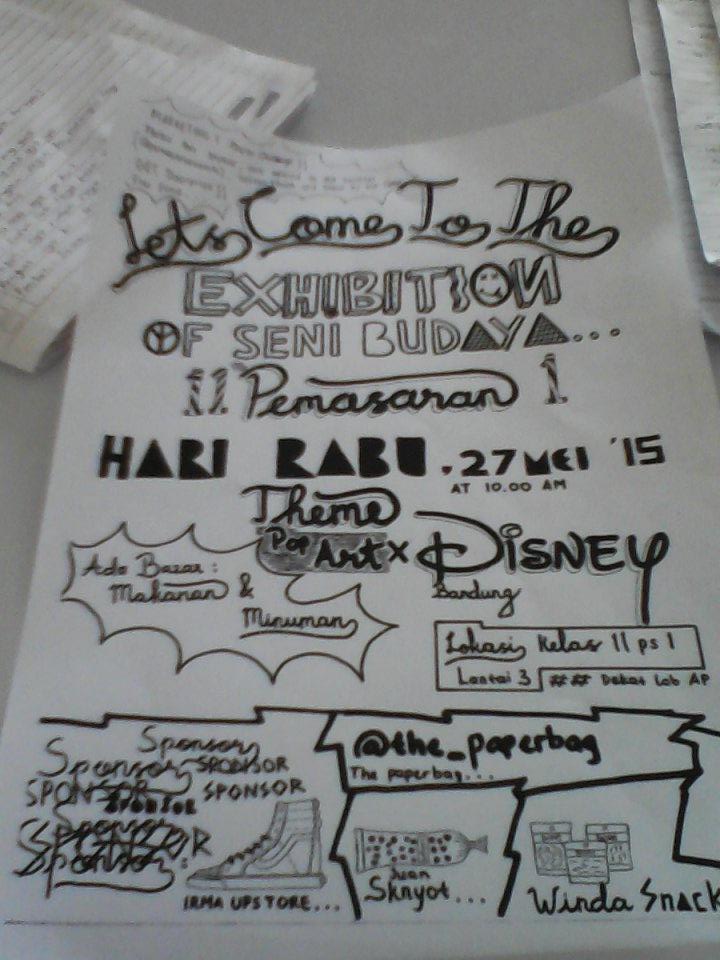 Lets Come To The
EXHIBITION
OF SENI BUDAYA...
11 Pemasaran 1
HARI RABU, 27 MEI '15
AT 10.00 AM
Theme
Pop Art x DISNEY
Bandung
Ada Bazar:
Makanan &
Minuman
Lokasi Kelas 11 ps 1
Lantai 3 ## Dekat Lab AP
Sponsor
Sponsor SPONSOR
SPONSOR SPONSOR SPONSOR
Sponsor
SPONSOR
Sponsor:
@the_paperbag
The paperbag...
IRMA UPSTORE...
Juan
Sknyot...
Winda Snack